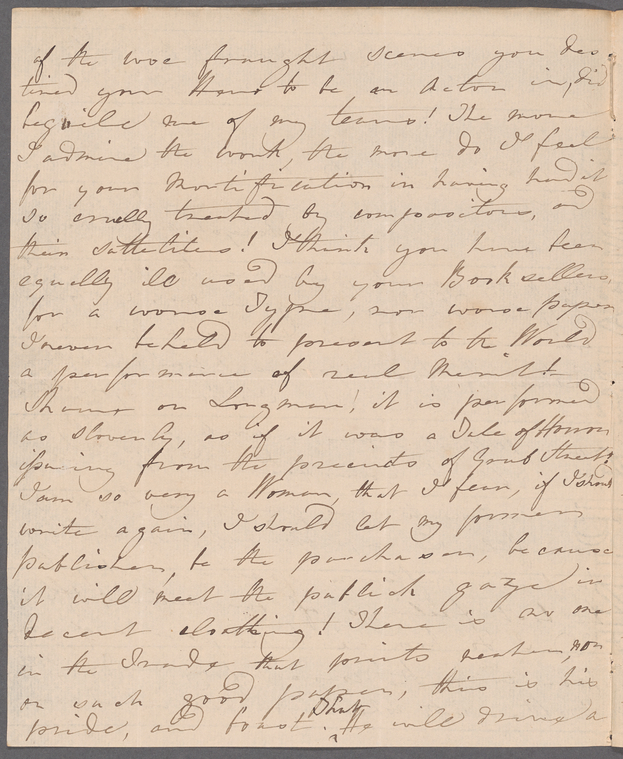 of the woe fraught scenes you des
tined your Hero to be an Actor in, did
beguile me of my tears! The more
I admire the work, the more do I feel
for your Mortification in having had it
so cruelly treated by compositors, and
their sattelites! I think you have been
equally ill used by your Booksellers,
for a worse Type, nor worse paper
I never beheld to present to the World
a performance of real Merit!
Shame on Longman! it is performed
as slovenly, as if it was a Tale of Horror
issuing from the precincts of Grub Street
I am so very a Woman, that I fear, if I should
write again, I should let my former
publisher, be the purchaser, because
it will meet the publick gaze in
decent cloathing! There is no one
in the Trade that prints neater, nor
on such good paper, this is his
pride, and boast. That He will drive a